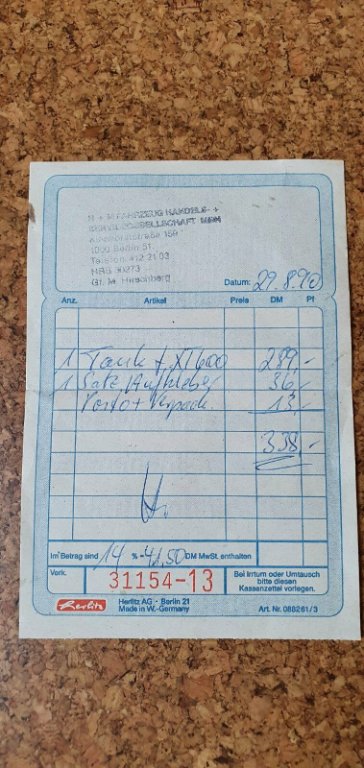 FAHRZEUG HANDELS- +
GESELLSCHAFT MBH
159
1000 Berlin 51
Telefon 412 21 03
HRB
Gf. M. Hirschberg
Datum: 29.8.90
Anz. Artikel Preis DM Pf
1 Tank + XT600 289,-
1 Satz Aufkleber 36,-
Porto + Verpack. 13,-
338,-
Im Betrag sind 14 % - 41,50 DM MwSt. enthalten
Verk. 31154-13 Bei Irrtum oder Umtausch
bitte diesen
Kassenzettel vorlegen.
Herlitz Herlitz AG · Berlin 21
Made in W.-Germany Art. Nr. 088261/3